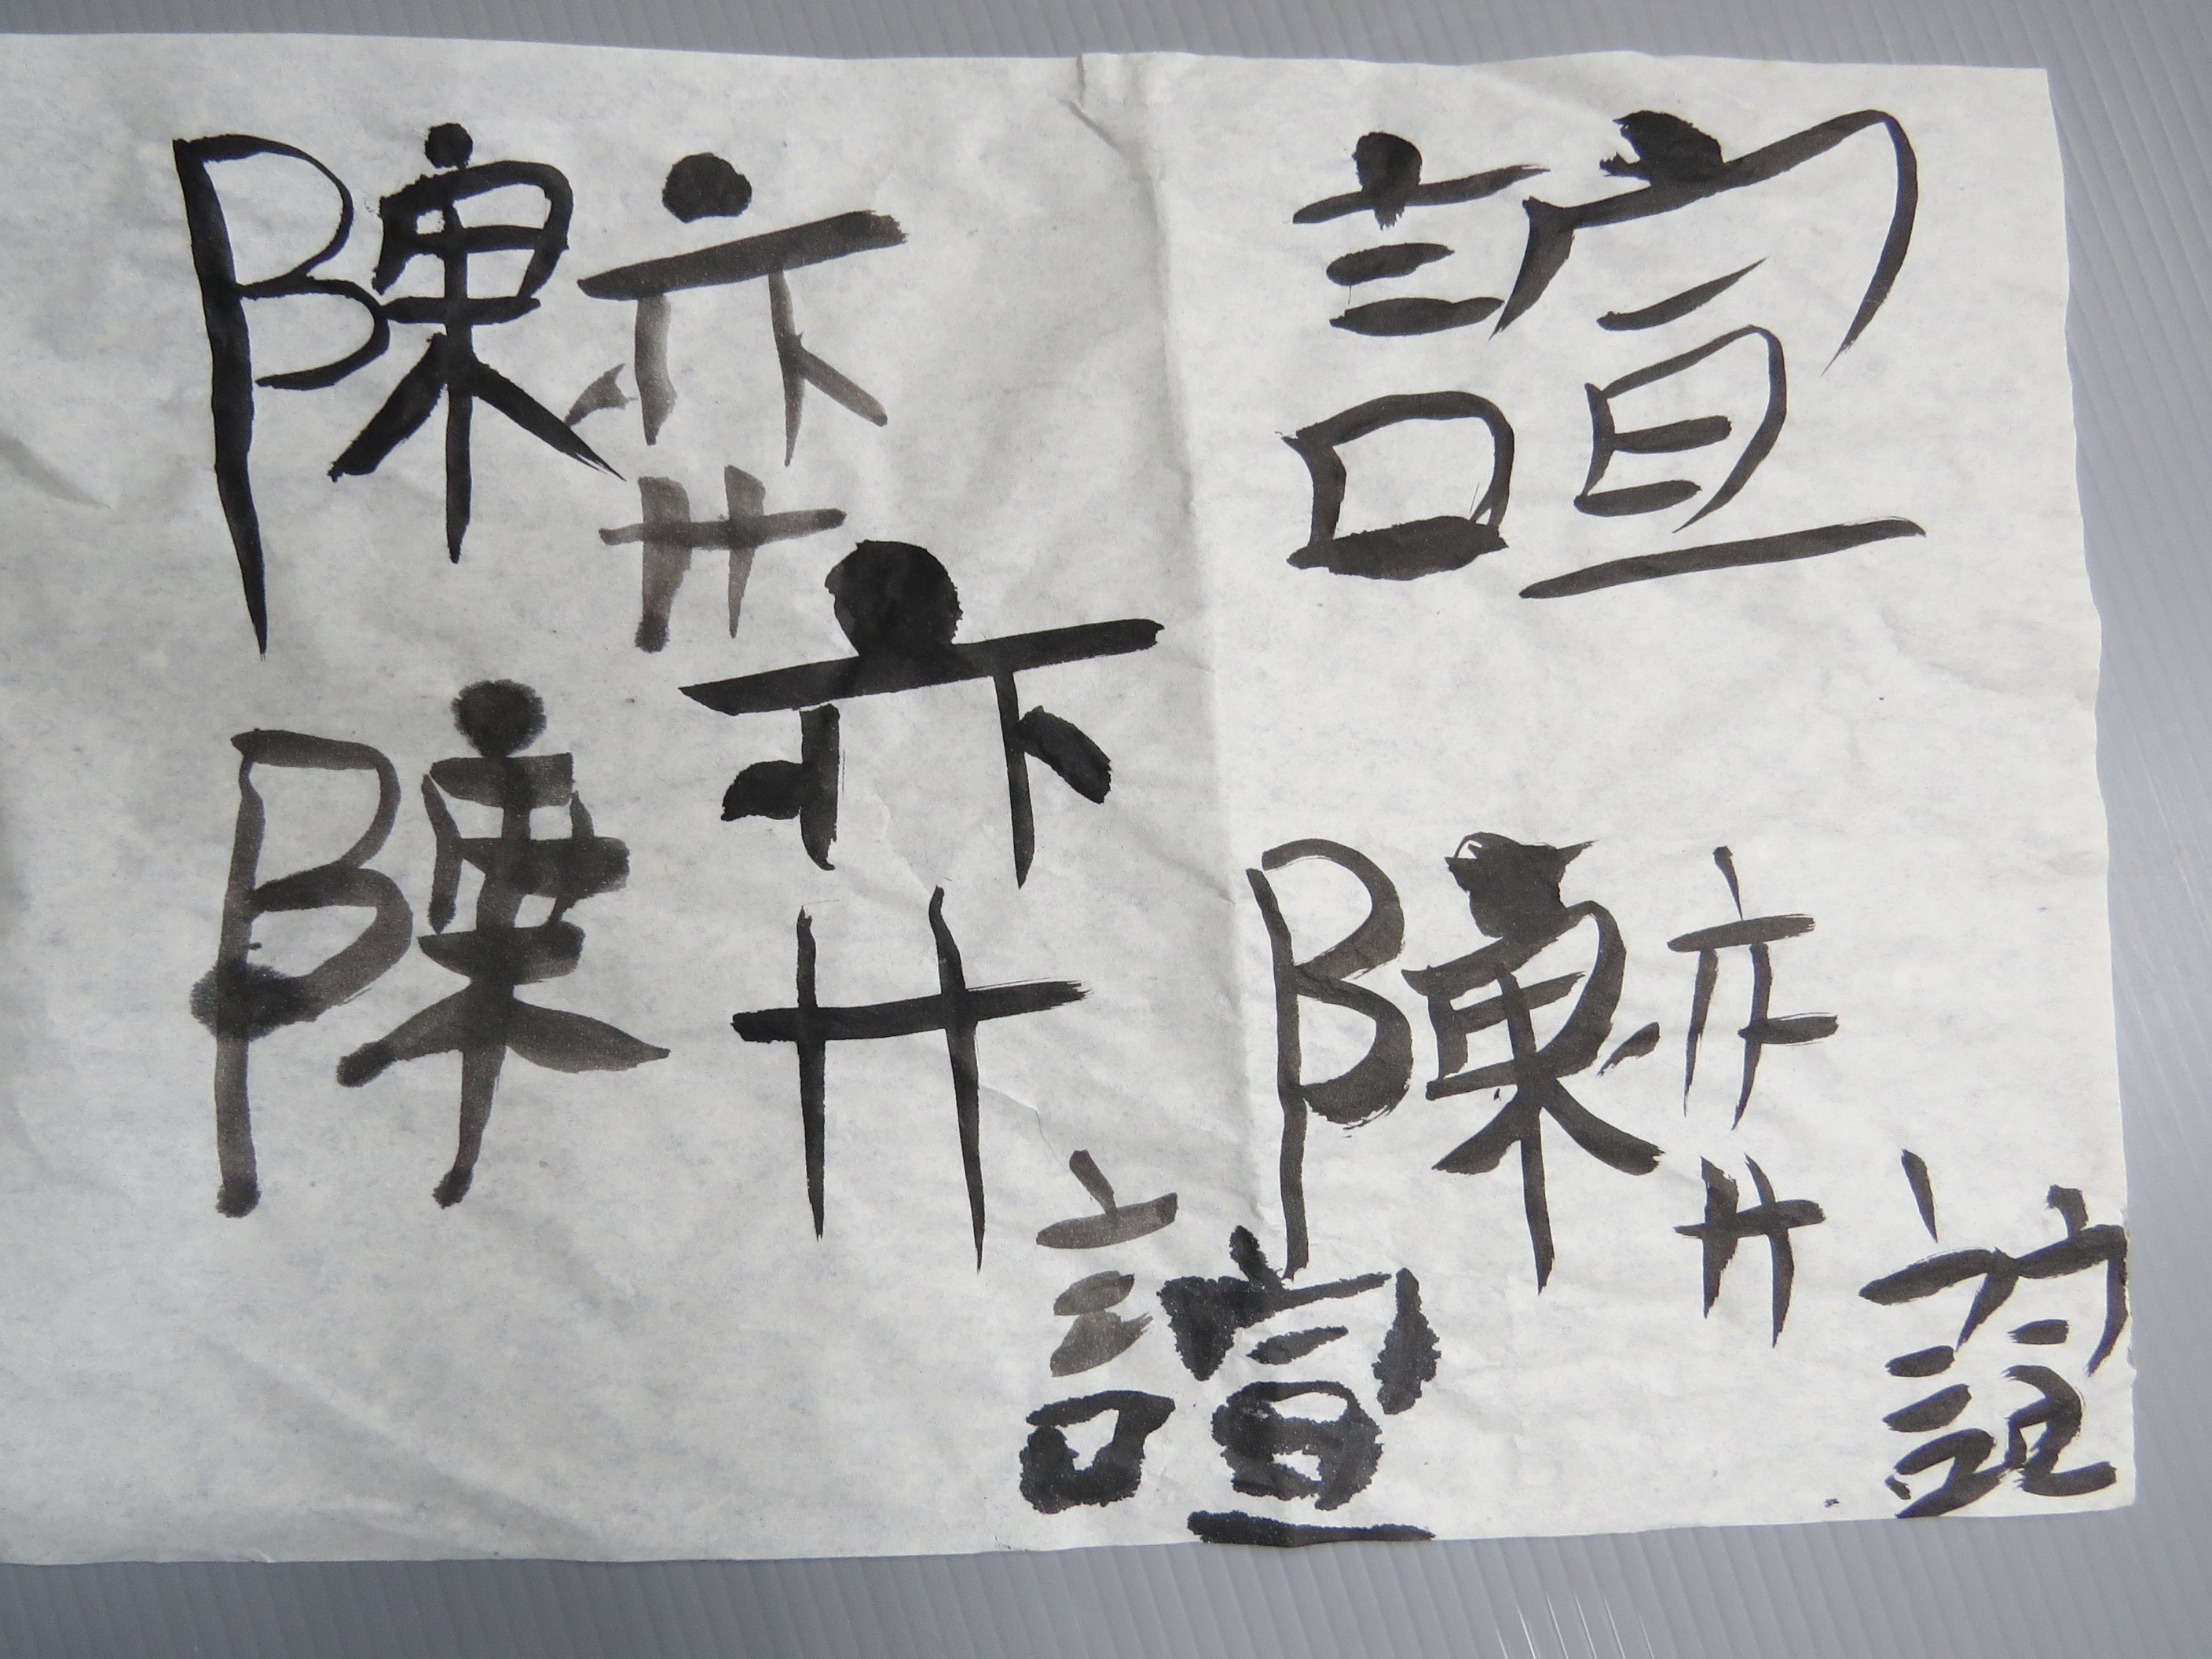 陳弈諠
陳弈諠
陳弈諠